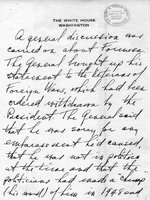 THE WHITE HOUSE
WASHINGTON
A general discussion was
carried on about Formosa.
The General brought up his
statement to the Veterans of
Foreign Wars, which had been
ordered withdrawn by the
President. The General said
that he was sorry for any
embarrassment he'd caused,
that he was not in politics
at the time and that the
politicians had made a "chump"
(his word) of him in 1948 and